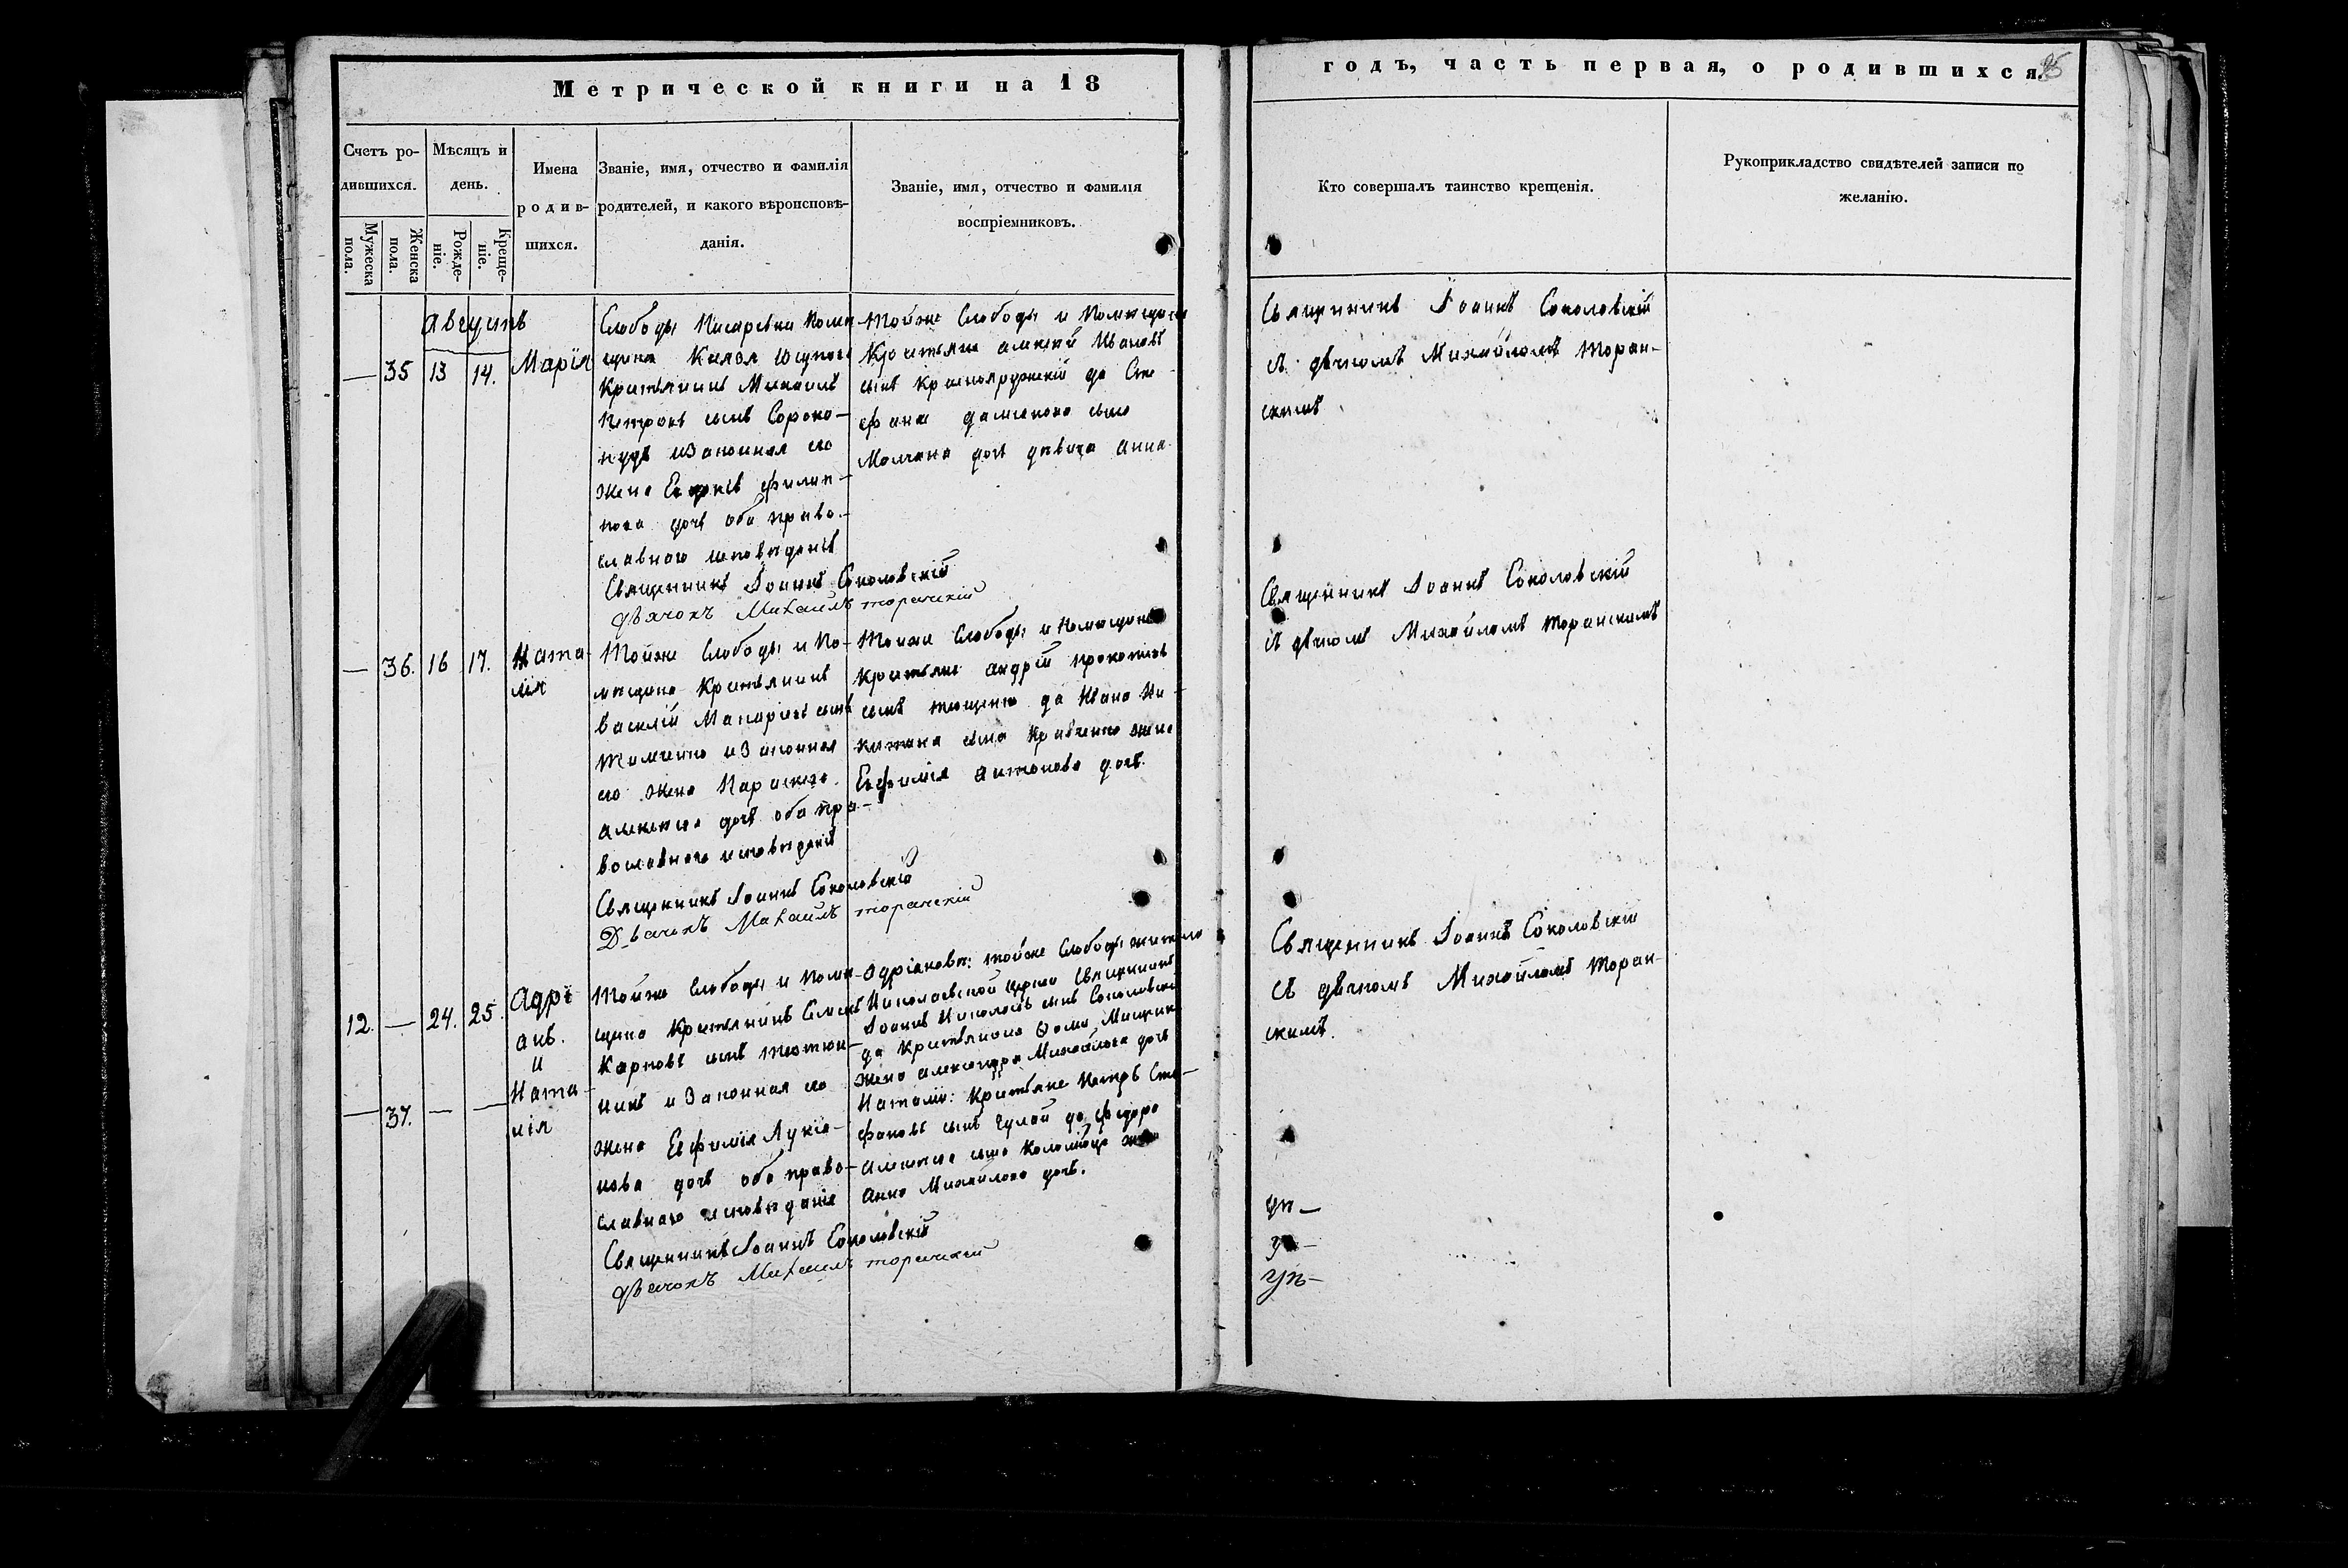 Метрической книги на 18
годъ, часть первая, о родившихся.
Счетъ ро-
дившихся.
Мужеска
пола.
Женска
пола.
Мѣсяцъ и
день.
Рожде-
ніе.
Креще-
ніе.
Имена
родив-
шихся.
Званіе, имя, отчество и фамилія
родителей, и какого вѣроисповѣ-
данія.
Званіе, имя, отчество и фамилія
воспріемниковъ.
Кто совершалъ таинство крещенія.
Рукоприкладство свидѣтелей записи по
желанію.
Августъ
— 35 13 14.
Марія
Слободы Писаревки Поме-
щика Князя
Крестьянинъ Михаилъ
Петровъ сынъ Сороко-
пудъ и Законная его
жена филип-
пова дочь оба право-
славного исповеданія
Священникъ Іоаннъ Соколовскій
Дьячокъ Михаилъ торанскій
Тойже Слободы и Помещика
Крестьяне алексей Ивановъ
сынъ да Сте
фана сына
дочь девица анна
Священникъ Іоаннъ Соколовскій
съ дячкомъ Михайломъ Торан-
скимъ
— 36. 16 17.
Ната-
лія
Тойже Слободы и По-
мещика Крестьянинъ
василій Макаріевъ сынъ
и Законная
его жена Параскева
алексеева дочь оба пра-
вославного исповеданія
Священникъ Іоаннъ Соколовскій
Дьячокъ Михаилъ торанскій
Тойже Слободы и Помещика
Крестьяне андрей прокопіевъ
сынъ да Ивана Ни-
китина сына Кравченко жена
Евфимія антонова дочь
Священникъ Іоаннъ Соколовскій
съ дячкомъ Михайломъ Торанскимъ
12. — 24. 25.
Адрі
анъ.
и
Ната-
лія
— 37. — —
Тойже Слободы и Поме-
щика Крестьянинъ
Карповъ сынъ Тютюн-
никъ и Законная его
жена Евфимія Лукіа-
нова дочь оба право-
славного исповеданія
Священникъ Іоаннъ Соколовскій
Дьячокъ Михаилъ торанскій
Адріановы: тойже Слободы
Николаевской церкви Священникъ
Іоаннъ Николаевъ сынъ Соколовскій
да Крестьянина
жена александра Михайлова дочь
Наталіи: Крестьяне Петръ Сте-
фановъ сынъ да федора
алексеева сына жена
Анна Михайлова дочь.
Священникъ Іоаннъ Соколовскій
съ дячкомъ Михайломъ Торан-
скимъ.